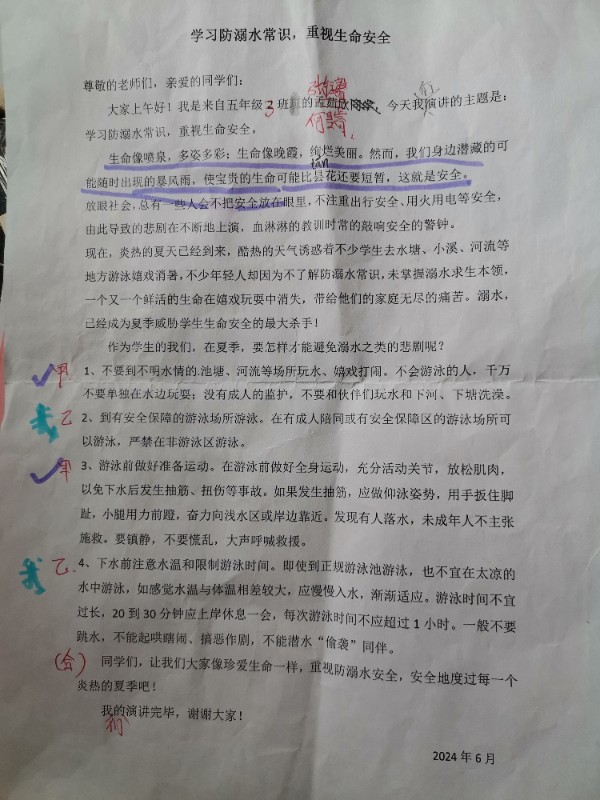 学习防溺水常识，重视生命安全
尊敬的老师们，亲爱的同学们：
大家上午好！我是来自五年级3班的 今天我演讲的主题是：
学习防溺水常识，重视生命安全。
生命像喷泉，多姿多彩；生命像晚霞，绚烂美丽。然而，我们身边潜藏的可
tán
能随时出现的暴风雨，使宝贵的生命可能比昙花还要短暂，这就是安全。
放眼社会，总有一些人会不把安全放在眼里，不注重出行安全、用火用电等安全，
由此导致的悲剧在不断地上演，血淋淋的教训时常的敲响安全的警钟。
现在，炎热的夏天已经到来，酷热的天气诱惑着不少学生去水塘、小溪、河流等
地方游泳嬉戏消暑，不少年轻人却因为不了解防溺水常识，未掌握溺水求生本领，
一个又一个鲜活的生命在嬉戏玩耍中消失，带给他们的家庭无尽的痛苦。溺水，
已经成为夏季威胁学生生命安全的最大杀手！
作为学生的我们，在夏季，要怎样才能避免溺水之类的悲剧呢？
甲 1、不要到不明水情的池塘、河流等场所玩水、嬉戏打闹。不会游泳的人，千万
不要单独在水边玩耍；没有成人的监护，不要和伙伴们玩水和下河、下塘洗澡。
乙 2、到有安全保障的游泳场所游泳。在有成人陪同或有安全保障区的游泳场所可
以游泳，严禁在非游泳区游泳。
甲 3、游泳前做好准备运动。在游泳前做好全身运动，充分活动关节，放松肌肉，
以免下水后发生抽筋、扭伤等事故。如果发生抽筋，应做仰泳姿势，用手扳住脚
趾，小腿用力前蹬，奋力向浅水区或岸边靠近。发现有人落水，未成年人不主张
施救。要镇静，不要慌乱，大声呼喊救援。
乙 4、下水前注意水温和限制游泳时间。即使到正规游泳池游泳，也不宜在太凉的
水中游泳，如感觉水温与体温相差较大，应慢慢入水，渐渐适应。游泳时间不宜
过长，20到30分钟应上岸休息一会，每次游泳时间不应超过1小时。一般不要
跳水，不能起哄瞎闹、搞恶作剧，不能潜水“偷袭”同伴。
（合） 同学们，让我们大家像珍爱生命一样，重视防溺水安全，安全地度过每一个
炎热的夏季吧！
我的演讲完毕，谢谢大家！
们
2024年6月